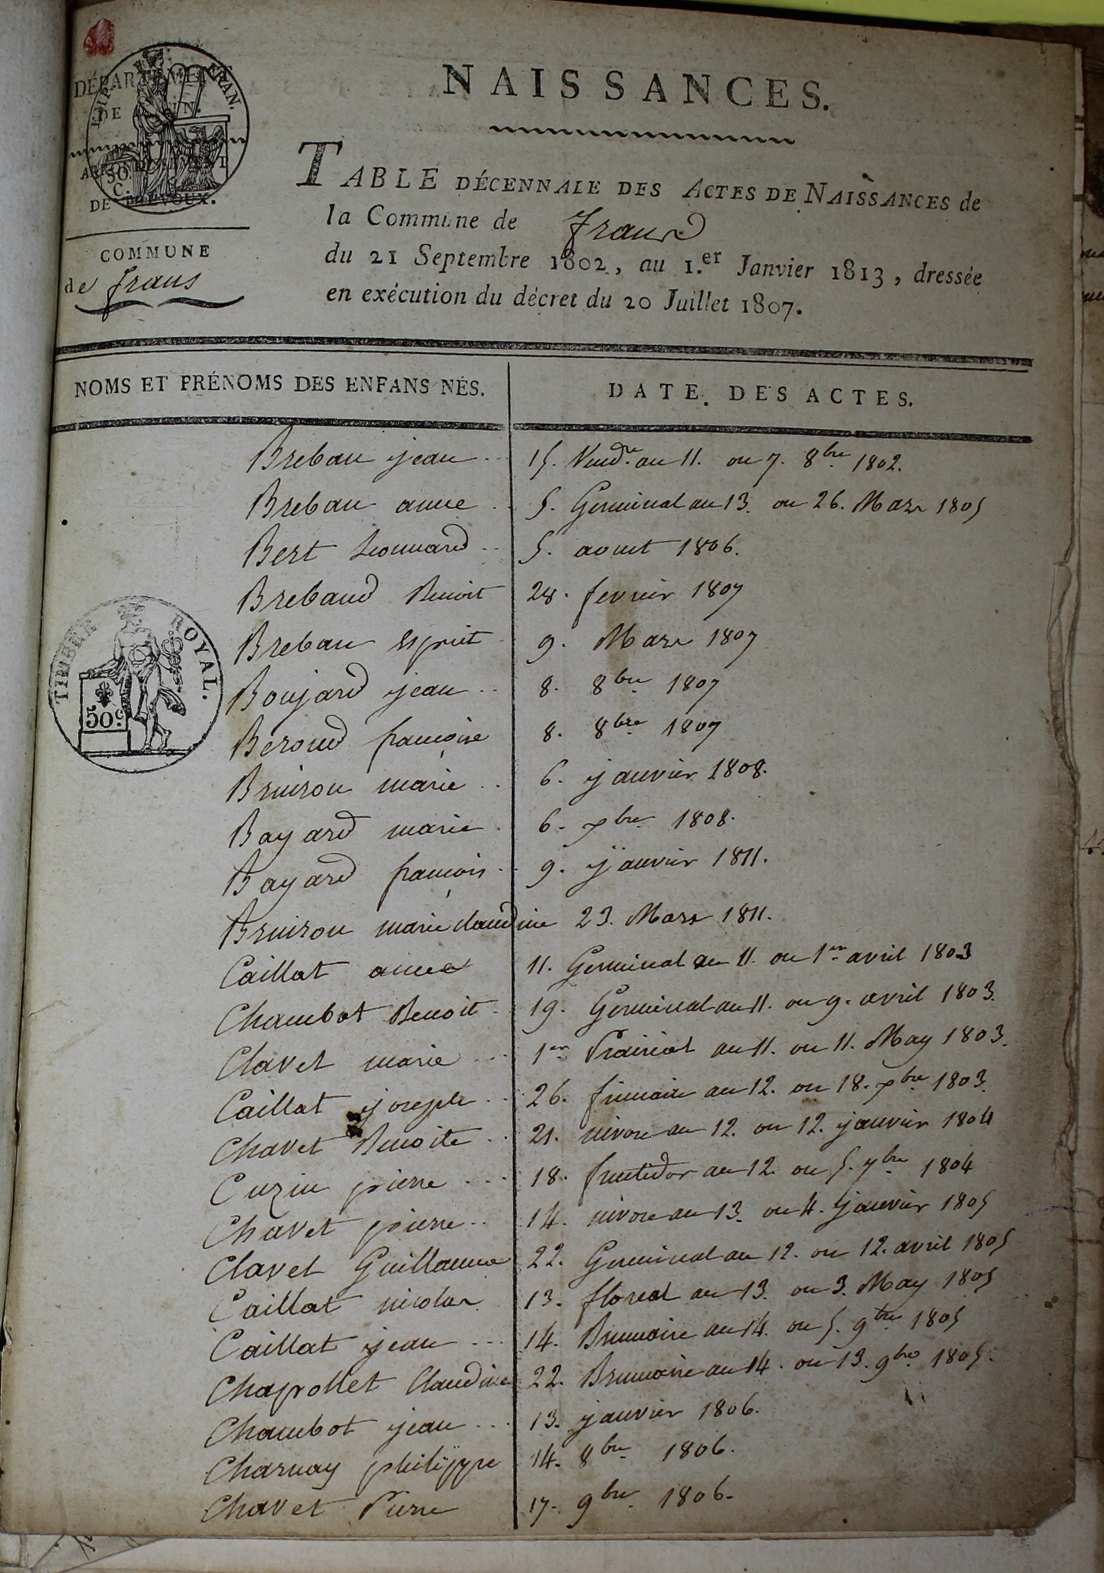 NAISSANCES.
DÉPARTEMENT
DE L'AIN.
ARRONDISSEMENT
DE TRÉVOUX.
COMMUNE
de frans
TABLE DÉCENNALE DES ACTES DE NAISSANCES de
la Commune de frans
du 21 Septembre 1802, au 1.er Janvier 1813, dressée
en exécution du décret du 20 Juillet 1807.
NOMS ET PRÉNOMS DES ENFANS NÉS. DATE DES ACTES.
Breban jean 15. Vend.re an 11. ou 7. 8bre 1802.
Breban anne 5. Germinal an 13. ou 26. Mars 1805
Bert Leonnard 5. aoust 1806.
Brebaud Benoit 28. fevrier 1807
Breban esprit 9. Mars 1807
Boujard jean 8. 8bre 1807
Beroud francoise 8. 8bre 1807
Bruiron marie 6. janvier 1808.
Bayard marie 6. xbre 1808.
Bayard francois 9. janvier 1811.
Bruiron marie claudine 23. Mars 1811.
Caillat aimee 11. Germinal an 11. ou 1er avril 1803
Chambot Benoit 19. Germinal an 11. ou 9. avril 1803.
Clavet marie 1er Prairial an 11. ou 11. May 1803.
Caillat joseph 26. frimaire an 12. ou 18. xbre 1803.
Chavet Benoite 21. nivose an 12. ou 12. janvier 1804
Cuzin pierre 18. fructidor an 12. ou 5. 7bre 1804
Chavet pierre 14. nivose an 13. ou 4. janvier 1805
Clavet Guillaume 22. Germinal an 12. ou 12. avril 1805
Caillat nicolas 13. floreal an 13. ou 3. May 1805
Caillat jean 14. Brumaire an 14. ou 5. 9bre 1805
Chapollet Claudine 22. Brumaire an 14. ou 13. 9bre 1805.
Chambot jean 13. janvier 1806.
Charnay philippe 14. 8bre 1806.
Chavet Pierre 17. 9bre 1806.
TIMBRE ROYAL.
50 c